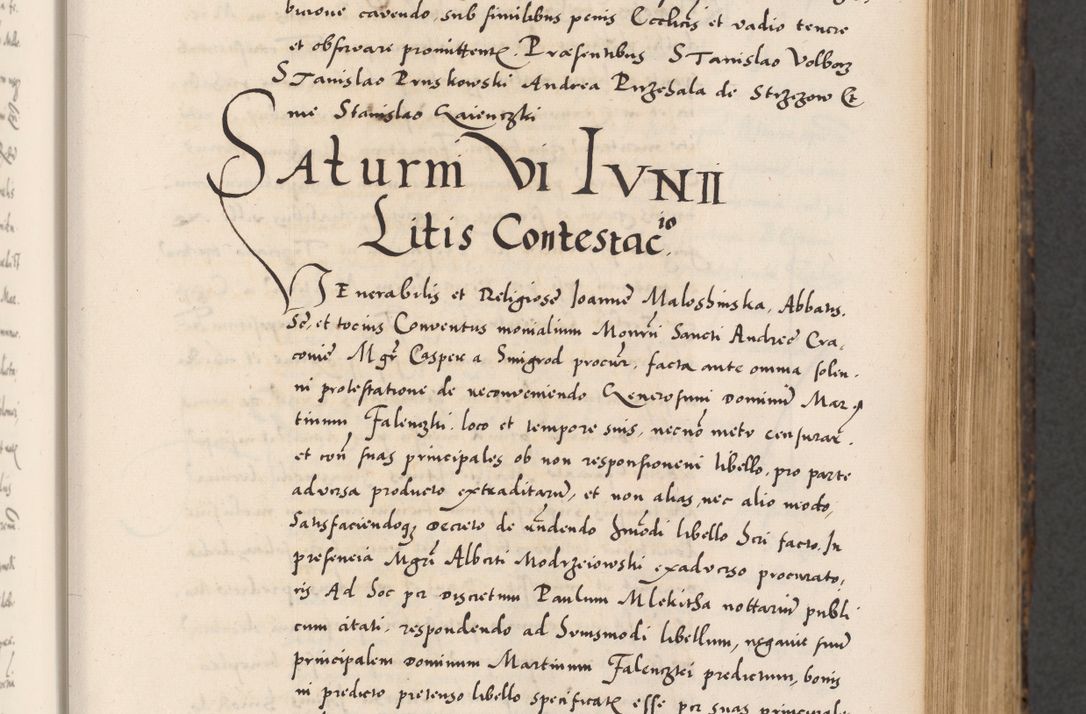 buione cavendo, sub similibus penis Ecclicis et vadio tenere
et observare promittentes. Præsentibus Stanislao Volborz
Stanislao Pruskowski Andrea Przesbala de Strzezow Et
me Stanislao Gaienczki
Saturni VI IVNII
Litis Contestacio.
VEnerabilis et Religiose Ioanne Maloshinska, Abbatis,
Se, et tocius Conventus monialium Monrii Sancti Andree Cra,
covie Mgr Casper a Smigrod procur, facta ante omnia solen,
ni protestatione de reconveniendo Generosum Dominum Mar,
tinum Falenczki, loco et tempore suis, necno metu censurar,
et con suas principales ob non responsionem libello, pro parte
adversa producto extraditarum, et non alias, nec alio modo,
Satisfaciendoq decreto de rndendo hmodi libello heri facto, In
presencia Mgri Alberti Modrzeiowski ex adverso procurato,
ris Ad hoc per Discretum Paulum Mlekitha nottarium publi
cum citati, respondendo ad huiusmodi libellum, negavit suum
principalem Dominum Martinum Falenczki predictum, bonis
in predicto pretenso libello specificatis esse per suas principales